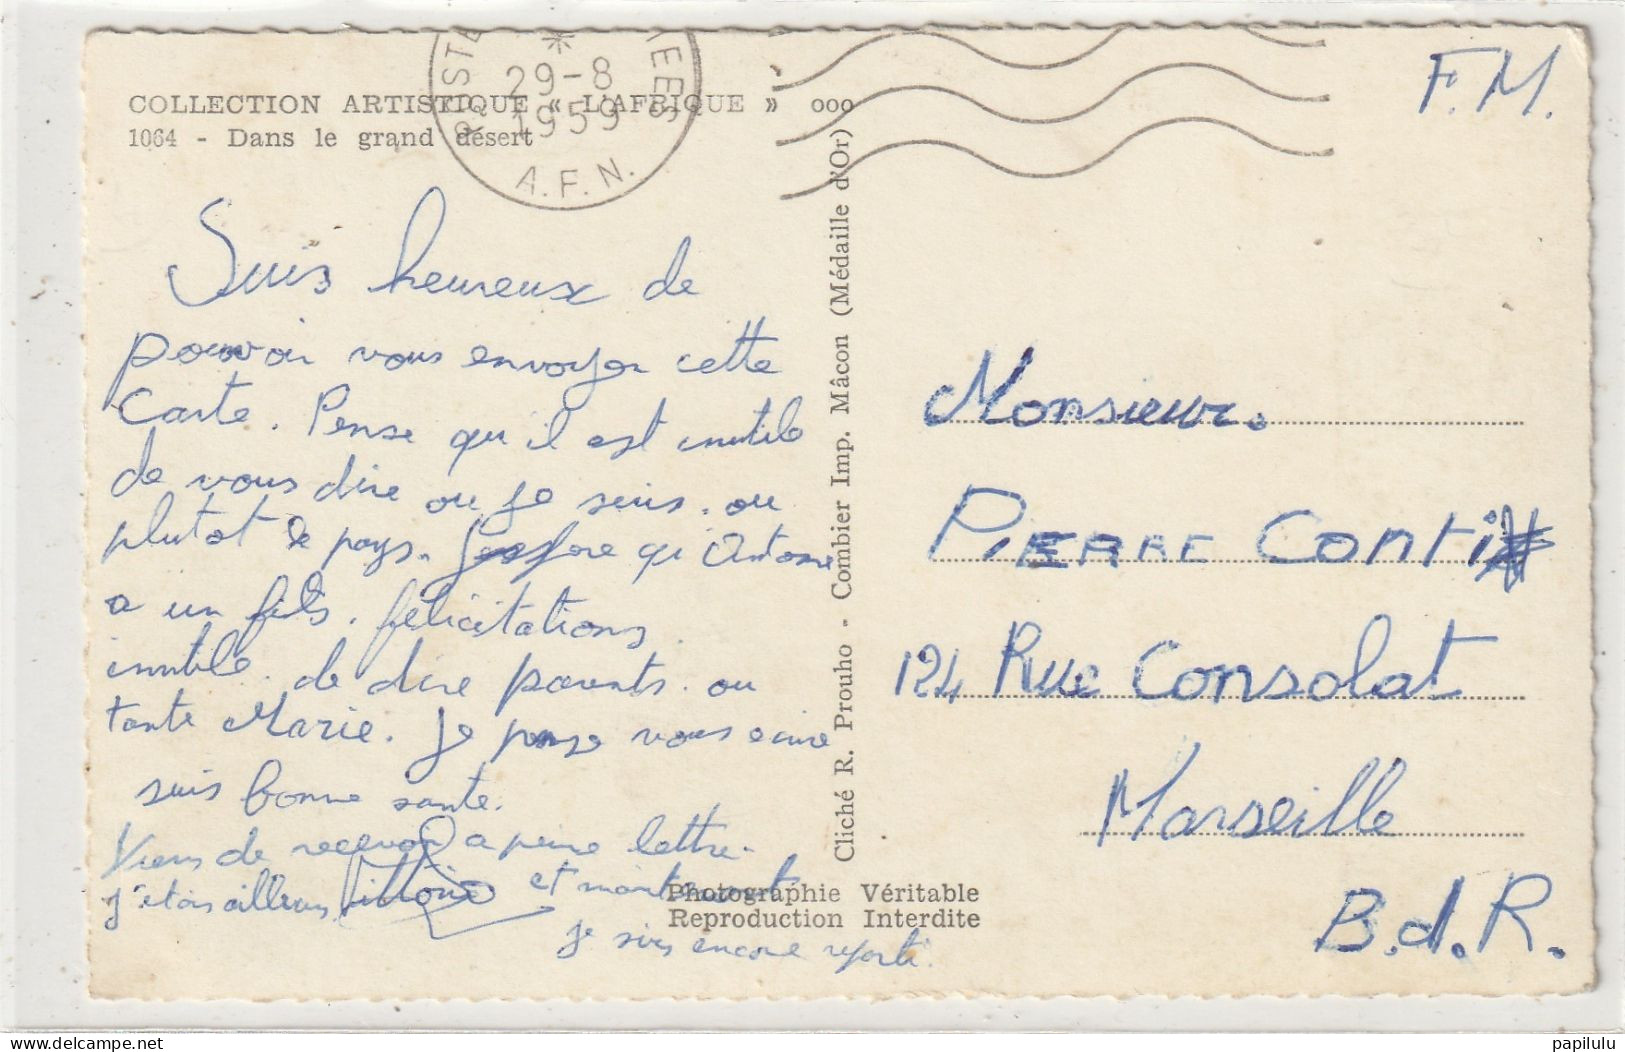 COLLECTION ARTISTIQUE « L'AFRIQUE » ooo
1064 - Dans le grand désert
POSTE
29-8
1959
A.F.N.
F.M.
Suis heureux de
pouvoir vous envoyer cette
Carte. Pense qu'il est inutile
de vous dire ou je suis. ou
plutot le pays. qu'Antoine
a un fils. félicitations
inutile. de dire parents. ou
tante Marie. Je pense vous ecrire
suis bonne sante.
Viens de recevoir a peine lettre.
j'etais ailleurs et maintenant
je suis encore reparti.
Cliché R. Prouho - Combier Imp. Mâcon (Médaille d'Or)
Photographie Véritable
Reproduction Interdite
Monsieur.
PIERRE Conti
124 Rue Consolat
Marseille
B.d.R.
papilulu